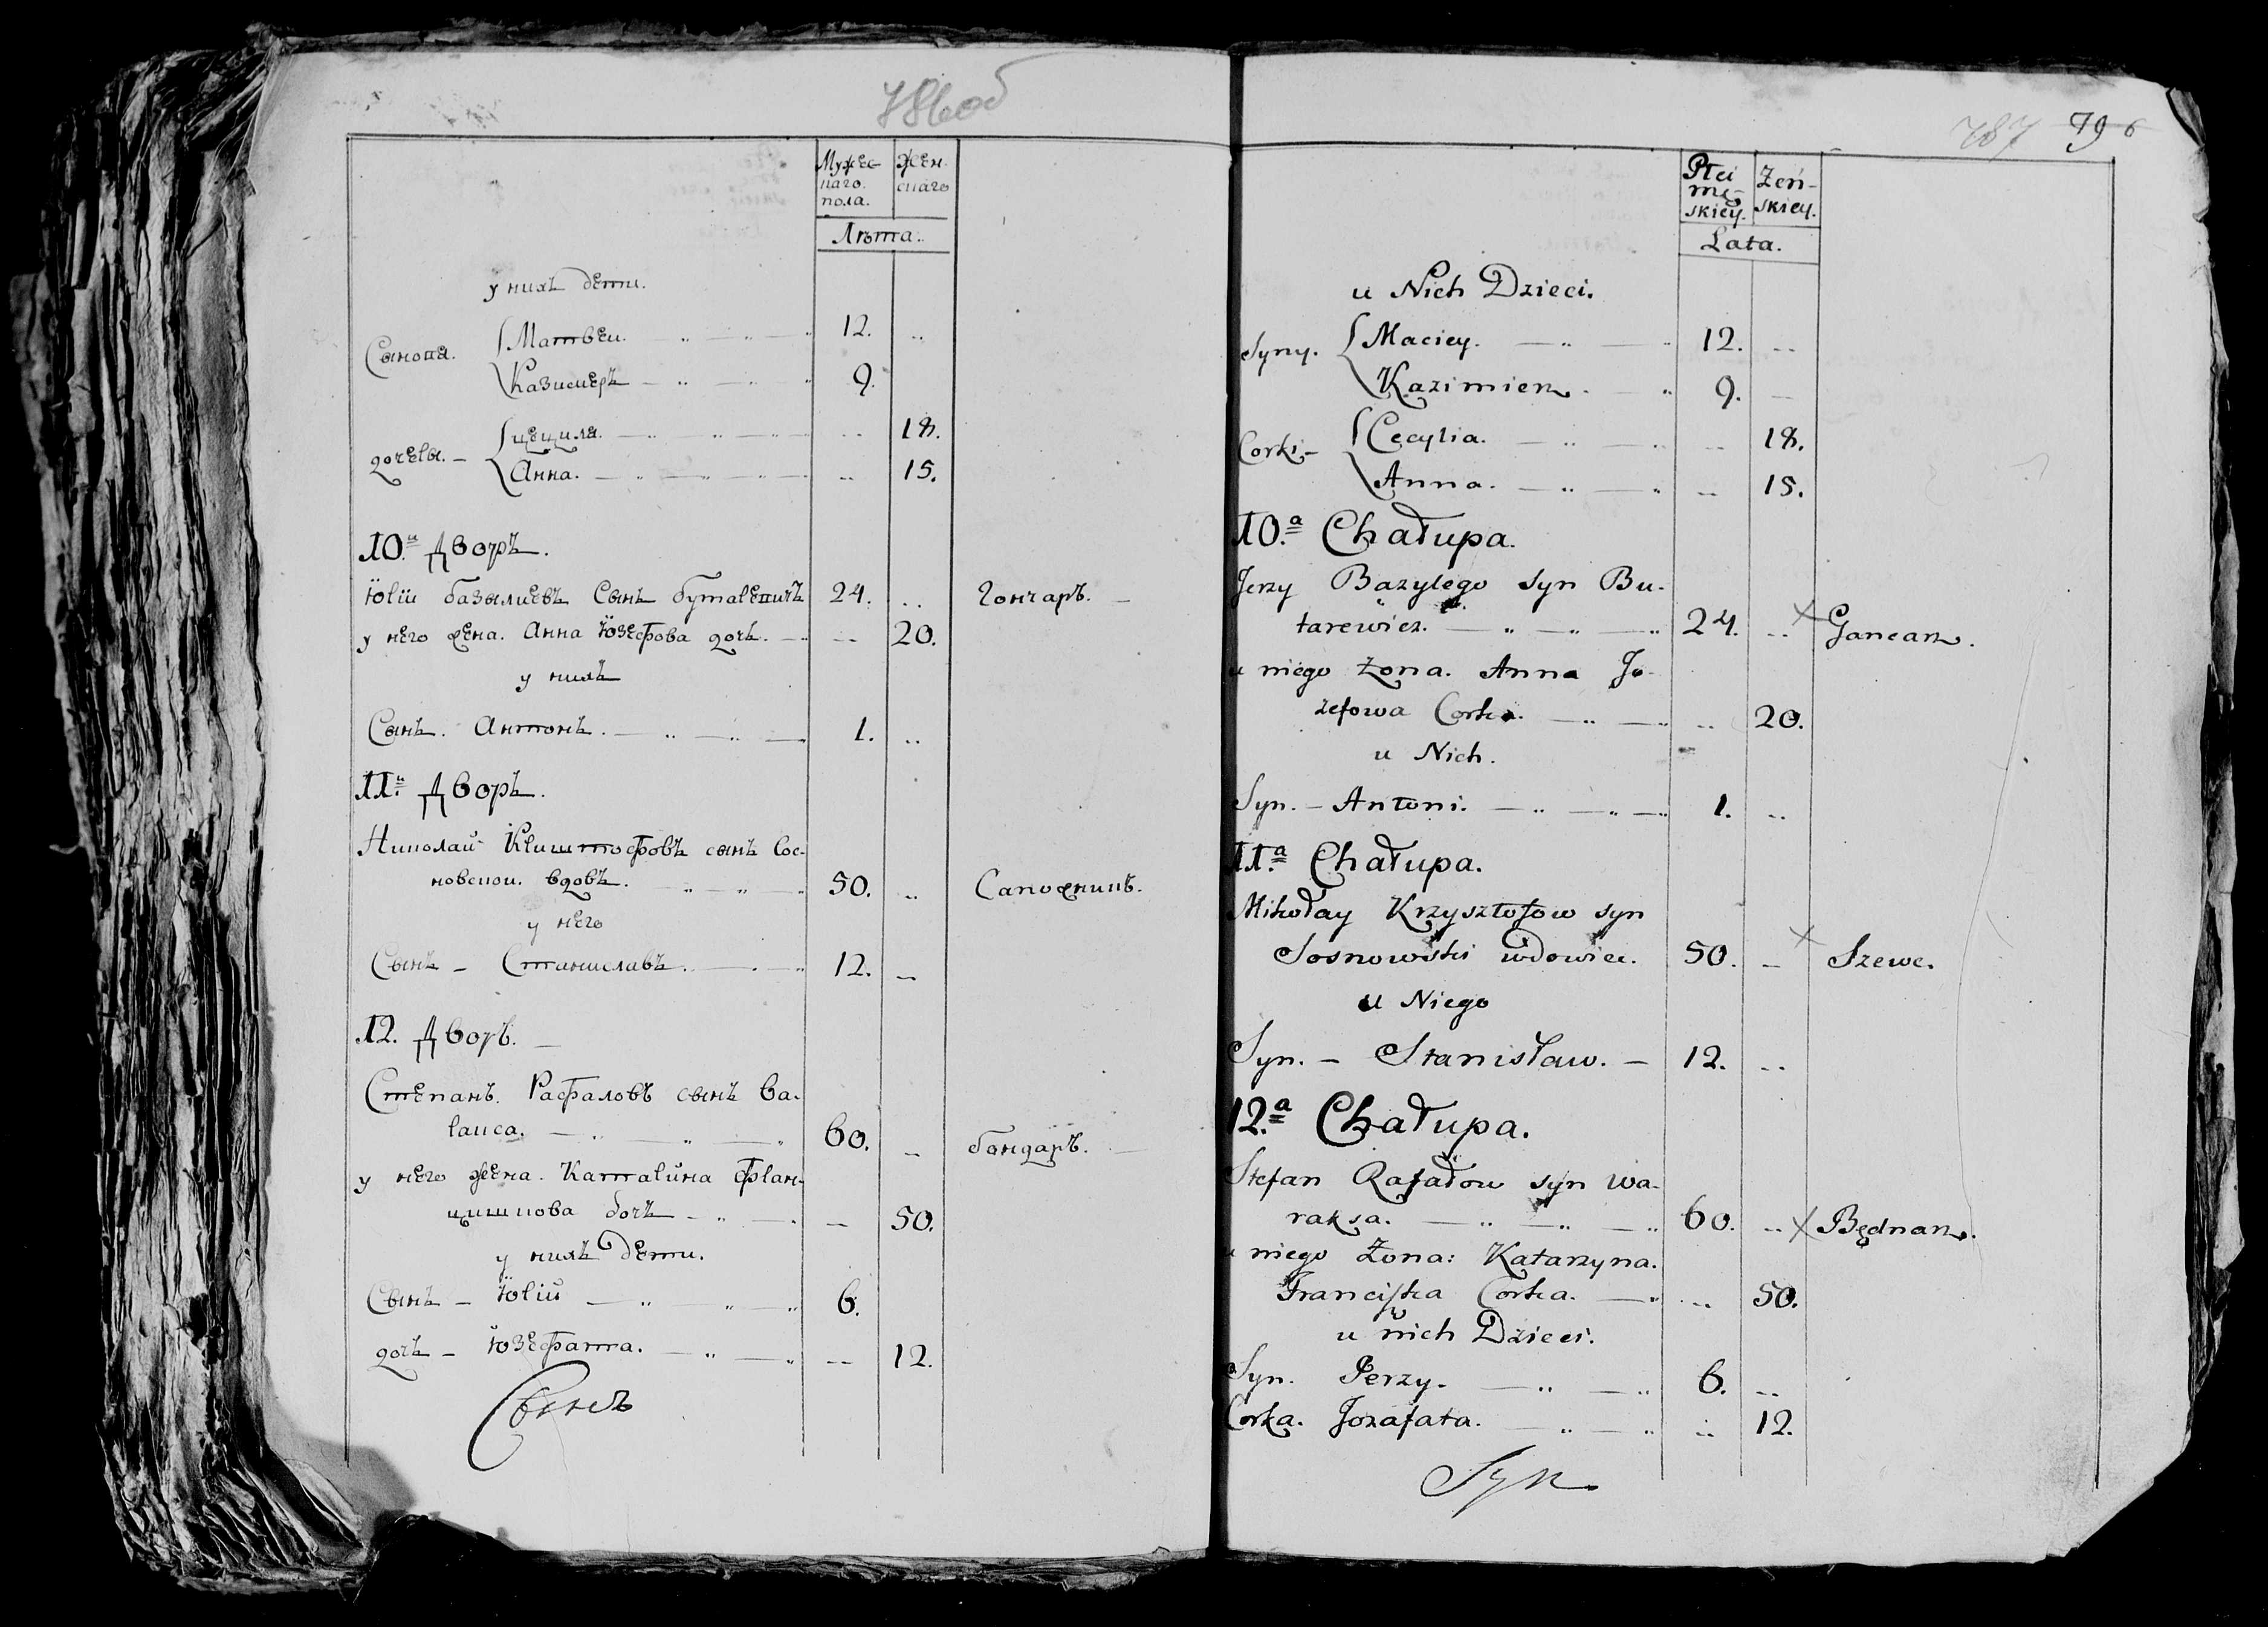 786об
Мужес-
каго.
пола.
Жен.
скаго
Лѣта..
у нихъ дети.
Сынова. Матвеи. 12. ..
Казимеръ 9.
дочеры. Цецыля. .. 18.
Анна. .. 15.
10.й Дворъ.
Юрій базылиевъ Сынъ бутаревичъ 24. .. Гончаръ.
у него жена. Анна Юзефова дочъ. .. 20.
у нихъ
Сынъ. Антонъ. 1. ..
11.й Дворъ.
Николай Криштофовъ сынъ Сос-
новскои. вдовъ. 50. .. Сапожникъ.
у него
Сынъ - Станиславъ. 12. ..
12. Дворъ.
Степанъ. Рафаловъ сынъ Ва-
ракса. 60. .. бондаръ.
у него жена. Катарина Фран-
цишкова дочъ .. 50.
у нихъ дети.
Сынъ - Юрій 6.
дочъ - Юзефата. .. 12.
Сынъ
787 796
Płci
mę-
skiey.
Żeń-
skiey.
Lata.
u Nich Dzieci.
Syny. Maciey. 12. ..
Kazimierz. 9. ..
Corki- Cecylia. .. 18.
Anna. .. 15.
10.a Chałupa.
Jerzy Bazylego syn Bu-
tarewicz. 24. .. × Garncarz.
u niego żona. Anna Jo-
zefowa Corka. .. 20.
u Nich.
Syn. - Antoni. 1. ..
11.a Chałupa.
Mikołay Krzysztofow syn
Sosnowski wdowiec. 50. .. × Szewc.
u Niego
Syn. - Stanisław. - 12. ..
12.a Chałupa.
Stefan Rafałow syn Wa-
raksa. 60. .. × Będnarz.
u niego Żona: Katarzyna.
Franciszka Corka. .. 50.
u nich Dzieci.
Syn. Jerzy. 6. ..
Corka. Jozafata. .. 12.
Syn